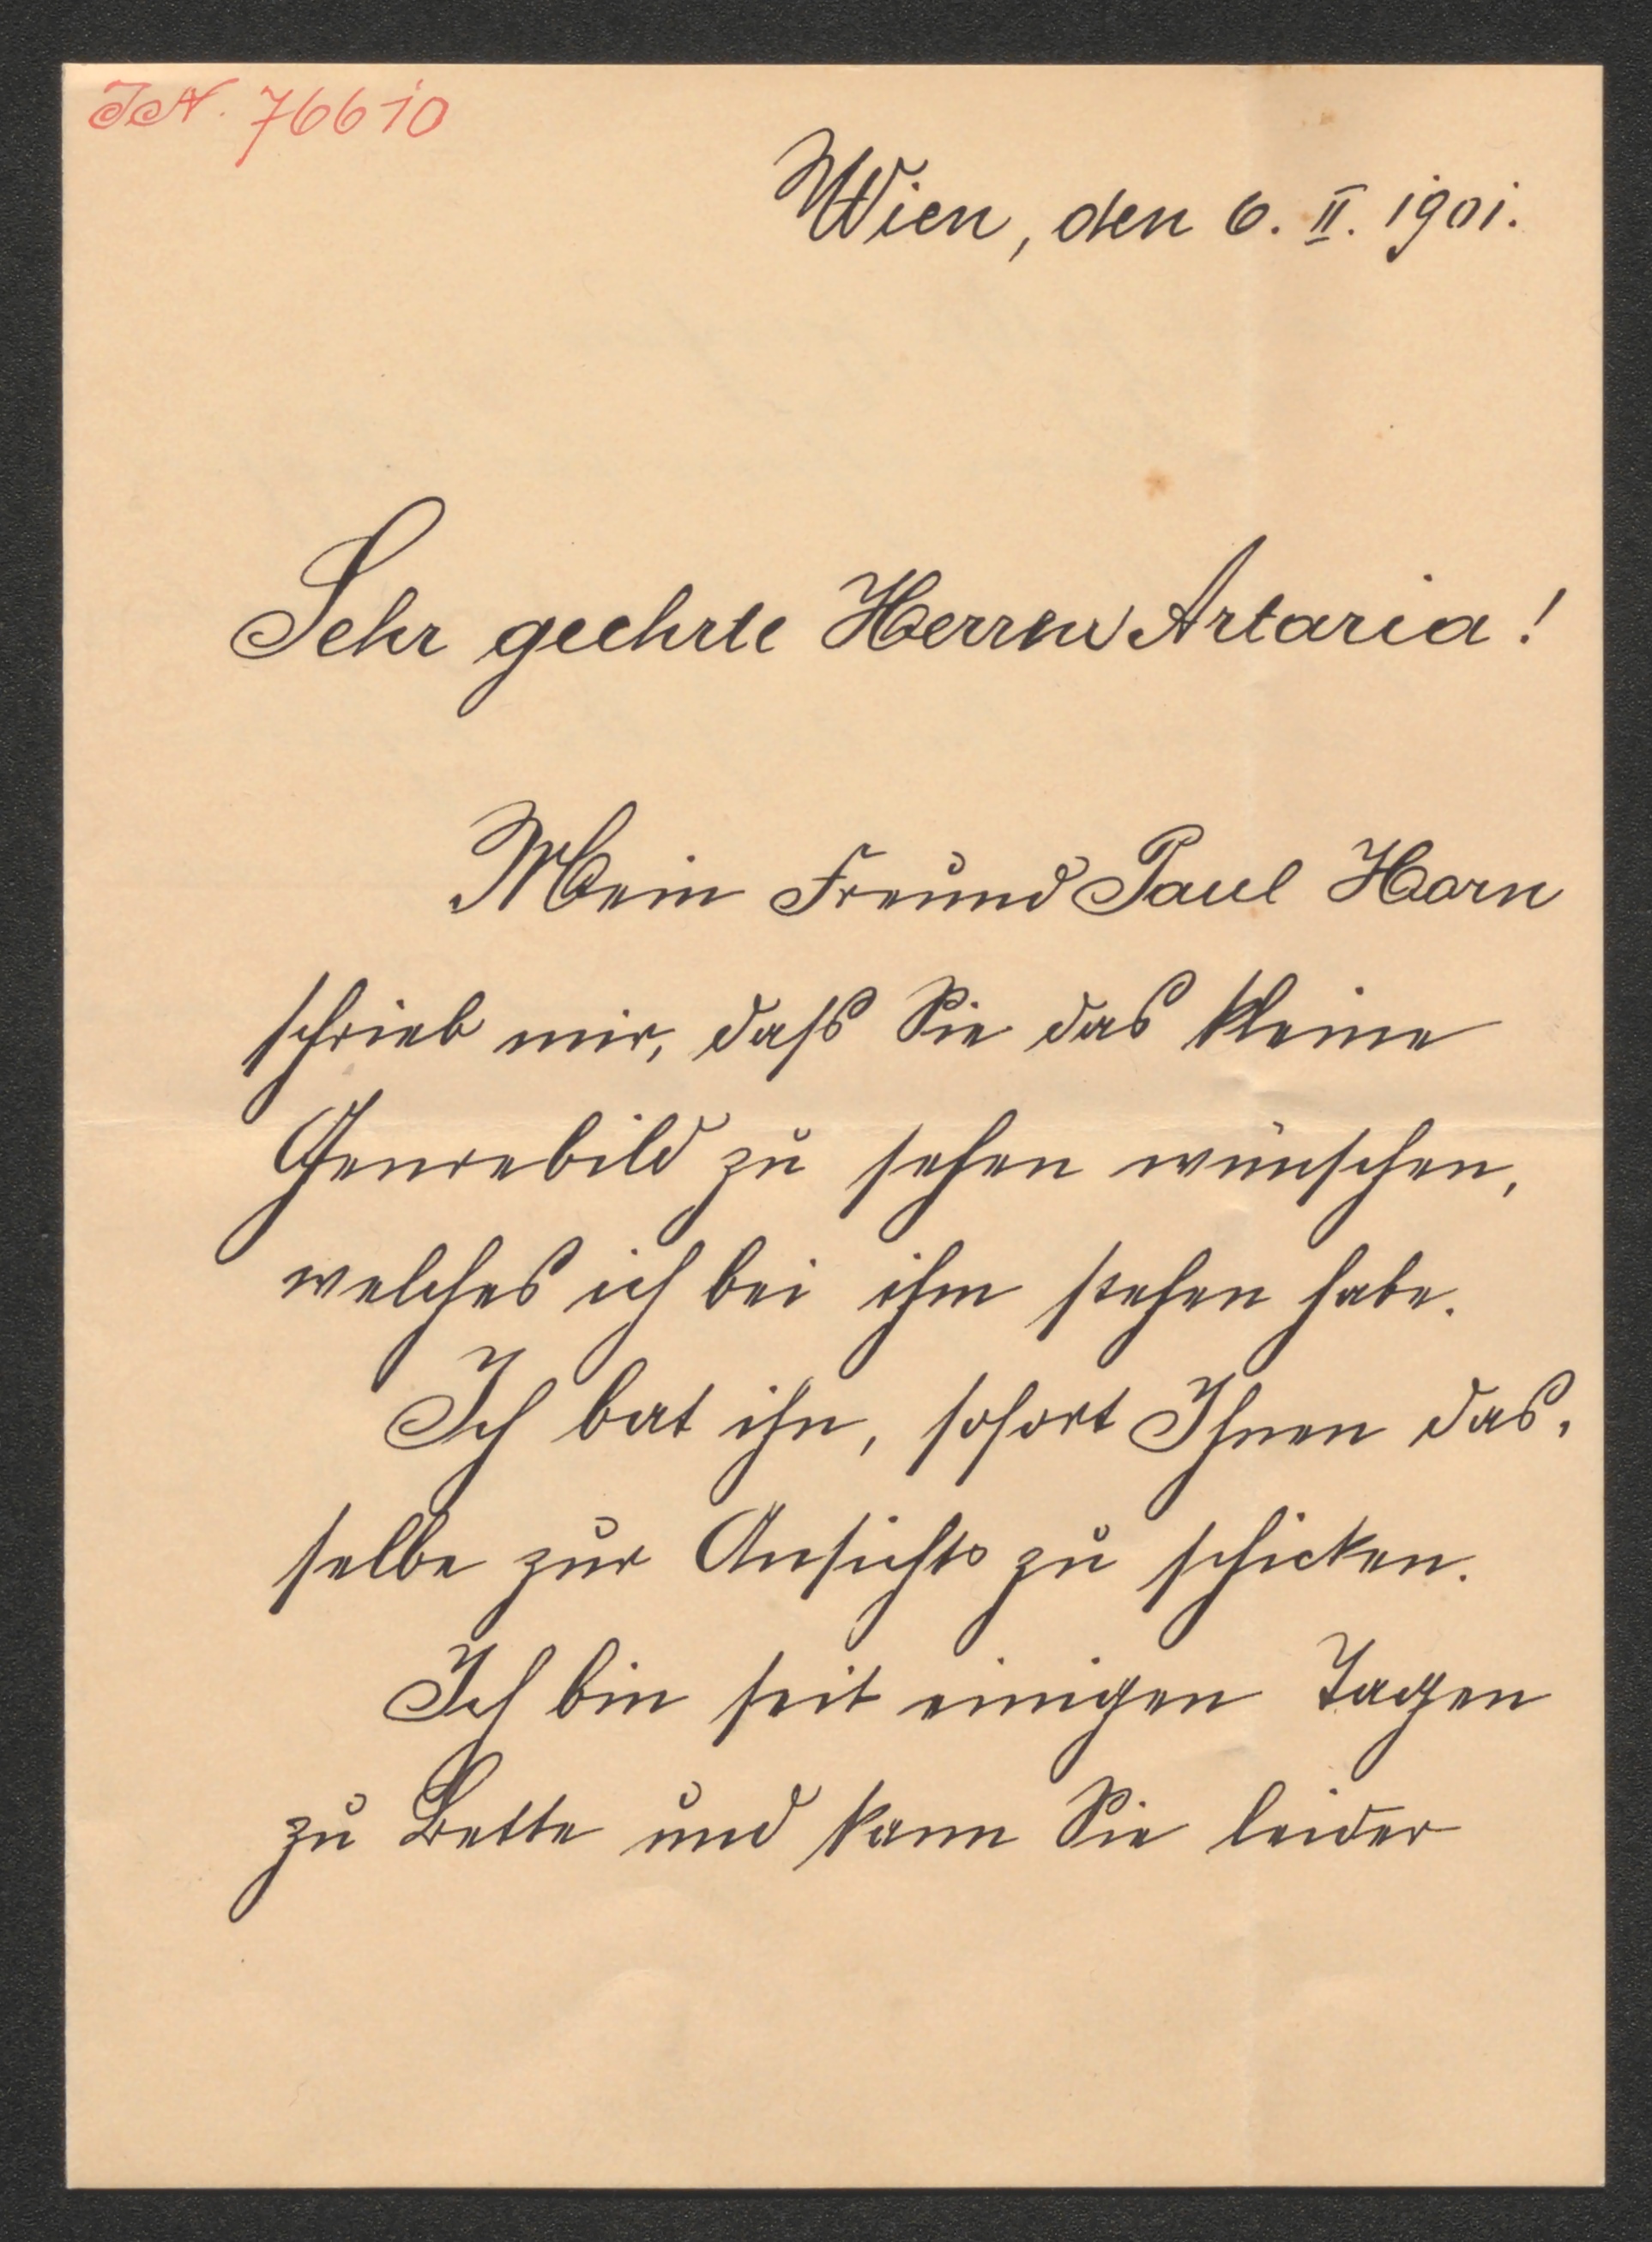 JN. 76610
Wien, den 6. II. 1901.
Sehr geehrte Herren Artaria!
Mein Freund Paul Horn
schrieb mir, daß Sie das kleine
Genrebild zu sehen wünschen,
welches ich bei ihm stehen habe.
Ich bat ihn, sofort Ihnen das-
selbe zur Ansicht zu schicken.
Ich bin seit einigen Tagen
zu Bette und kann Sie leider